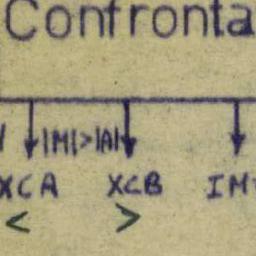 Confronta
|M|>|A|
XCA XCB IM
< >